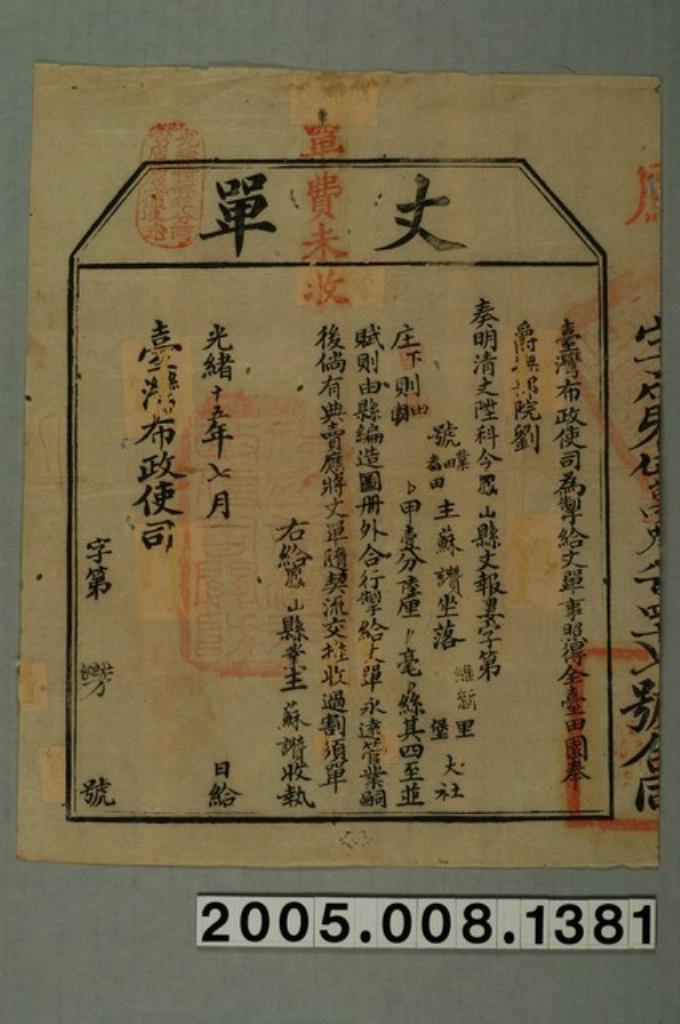 丈單
單費未收
臺灣布政使司為掣給丈單事照得全臺田園奉
爵撫部院劉
奏明清丈陞科今鳳山縣丈報異字第
號 業田主蘇讚坐落 維新里堡 大社
庄下則田 甲壹分陸厘 毫 絲其四至並
賦則由縣編造圖冊外合行掣給丈單永遠管業嗣
後倘有典賣應將丈單隨契流交推收過割須單
右給鳳山縣業主 蘇讚收執
光緒十五年七月 日給
臺灣布政使司
字第 號
號合同
2005.008.1381